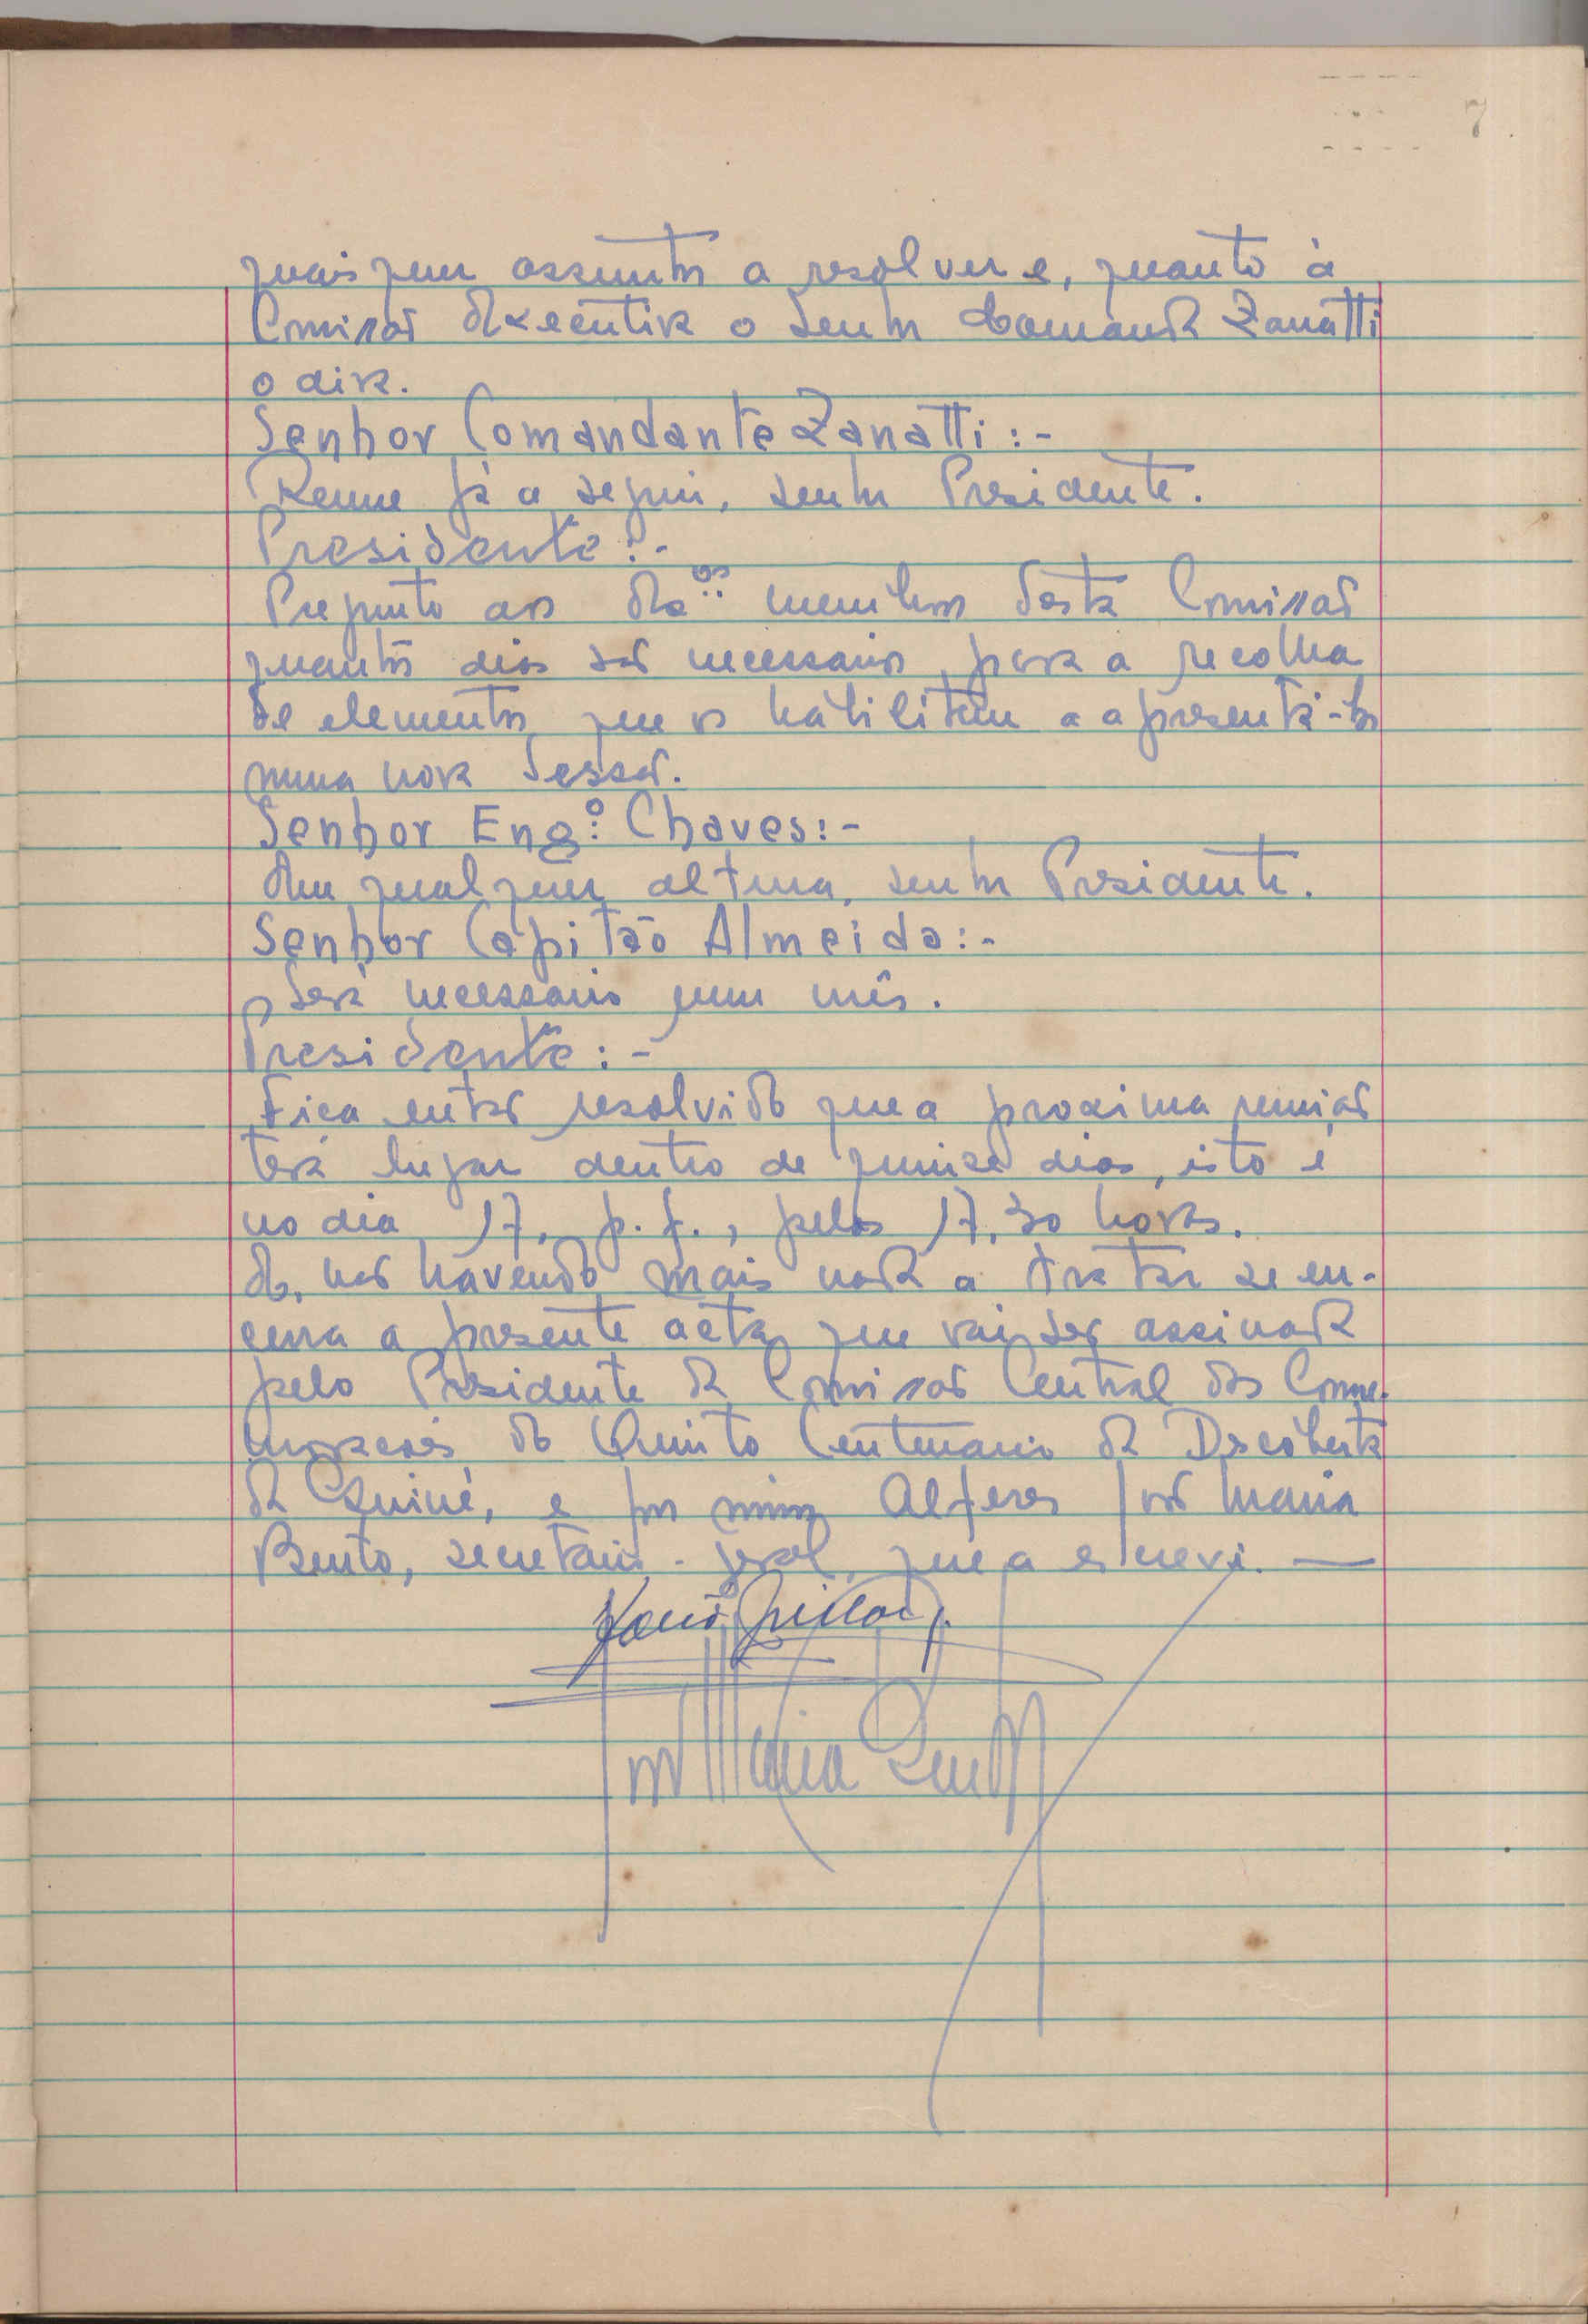 7
quaisquer assuntos a resolver e, quanto à
Comissão Executiva o Senhor Comandt Zanatti
o dirá.
Senhor Comandante Zanatti:-
Reune já a seguir, senhor Presidente.
Presidente:-
Pregunto aos Ex.os membros desta Comissão
quantos dias são necessarios para a recolha
de elementos que os habilitem a apresentá-los
numa nova Sessão.
Senhor Eng.o Chaves:-
Em qualquer altura, senhor Presidente.
Senhor Capitão Almeida:-
Será necessario um mês.
Presidente:-
Fica então resolvido que a proxima reunião
terá lugar dentro de quinze dias, isto é
no dia 17, p.f., pelas 17,30 horas.
E, não havendo mais nada a tratar se en-
cerra a presente acta que vai ser assinada
pelo Presidente da Comissão Central das Come-
morações do Quinto Centenario da Descoberta
da Guiné, e por mim Alferes João Maria
Bento, secretario-geral, que a escrevi. —
Maria Bento